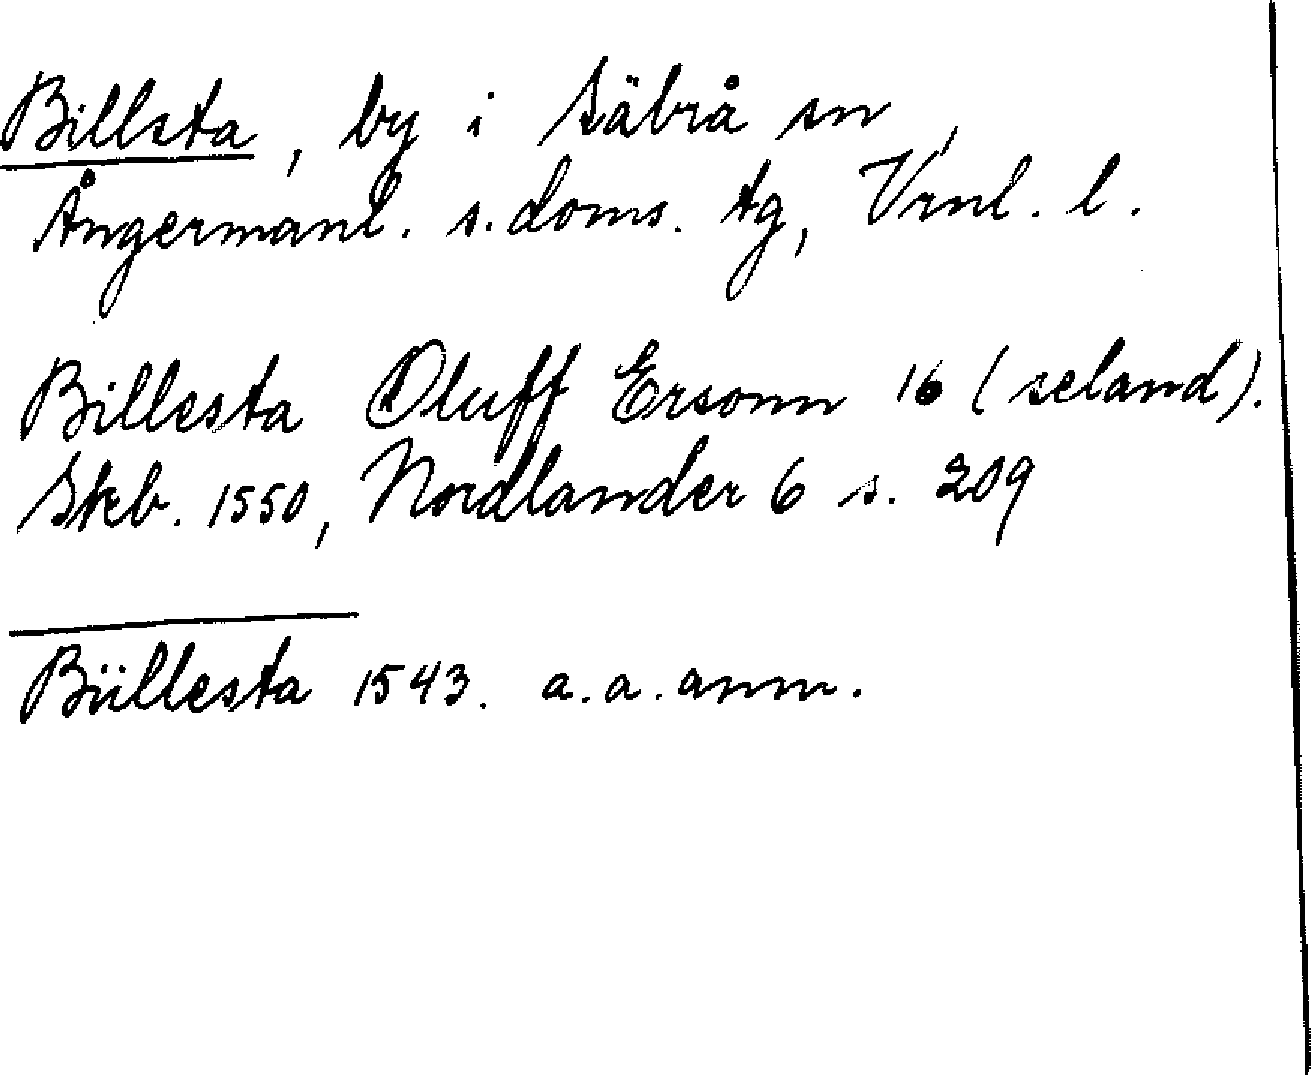 Billsta, by i Säbrå sn,
Ångermanl. s. doms. tg, Vrnl. l.
Billesta Oluff Ersonn 16 (seland).
Skb. 1550, Nordlander 6 s. 209
Büllesta 1543. a.a. anm.